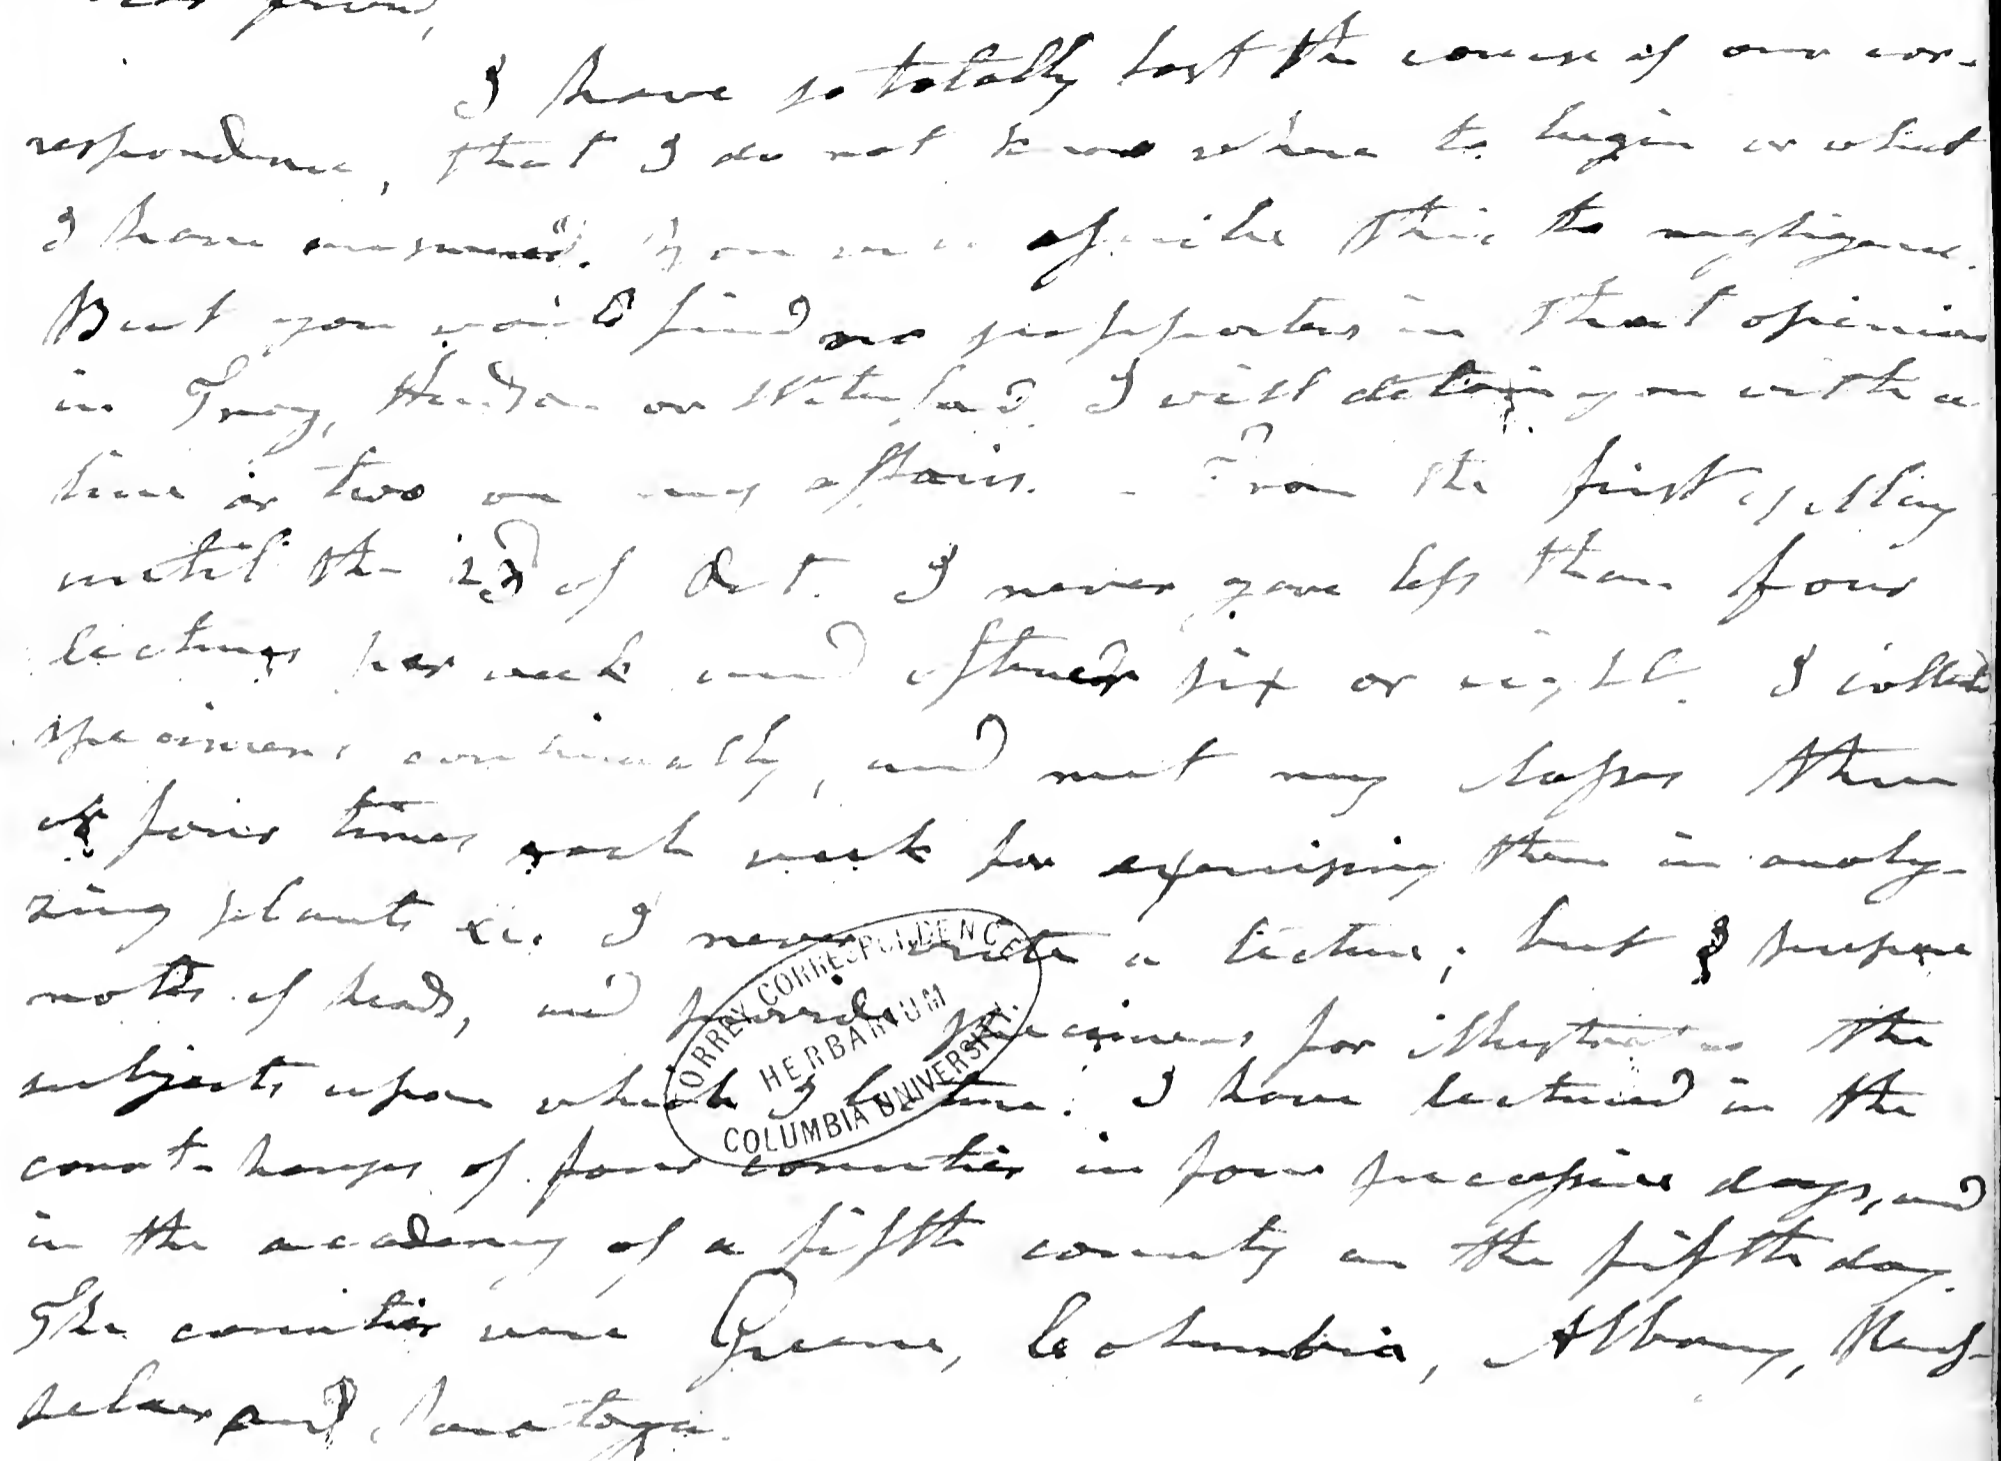 friend,
I have so totally lost the course of our cor-
respondence, that I do not know where to begin or what
I have answered. You may ascribe this to negligence.
But you would find no supporters in that opinion
in Troy, Hudson or Waterford. I will detain you with a
line or two on my affairs. - From the first of May
until the 23d of Oct. I never gave less than four
lectures per week and oftener six or eight. I collected
specimens continually, and met my classes three
or four times each week for exercising them in analy-
zing plants &c. I never write a lecture; but I prepare
notes of heads, and provide specimens for illustrating the
subjects upon which I lecture. I have lectured in the
court-houses of four counties in four successive days, and
in the academy of a fifth county on the fifth day.
The counties were Greene, Columbia, Albany, Rens-
selaer and Saratoga.
TORREY CORRESPONDENCE
HERBARIUM
COLUMBIA UNIVERSITY.